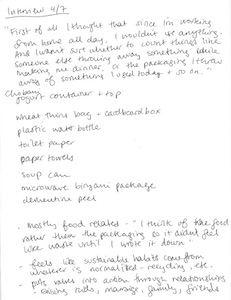 Interview 4/7
"First of all I thought that since I'm working
from home all day, I wouldn't use anything.
And I wasn't sure whether to count things like
someone else throwing away something while
making me dinner, or the packaging I threw
away of something I used today + so on."
Chobani
yogurt container + top
wheat thins bag + cardboard box
plastic water bottle
toilet paper
paper towels
soup can
microwave biryani package
clementine peel
- mostly food related - "I think of the food
rather than the packaging so it didn't feel
like waste until I wrote it down"
- feels like sustainable habits come from
whatever is normalized - recycling, etc.
- puts values into action through relationships
- raising kids, marriage, family, friends